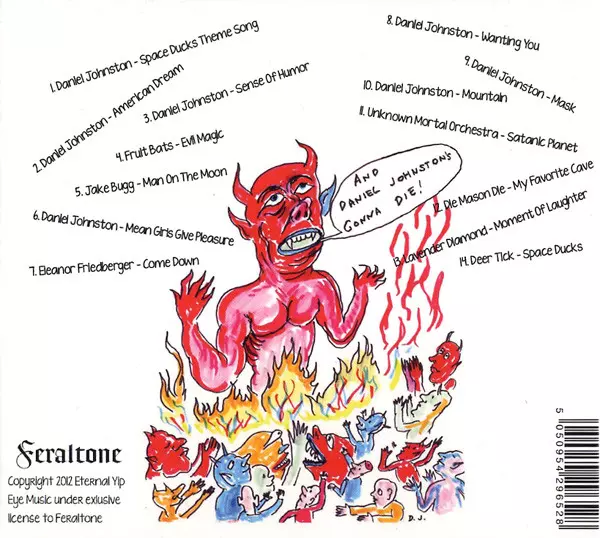 1. Daniel Johnston - Space Ducks Theme Song
2. Daniel Johnston - American Dream
3. Daniel Johnston - Sense Of Humor
4. Fruit Bats - Evil Magic
5. Jake Bugg - Man On The Moon
6. Daniel Johnston - Mean Girls Give Pleasure
7. Eleanor Friedberger - Come Down
8. Daniel Johnston - Wanting You
9. Daniel Johnston - Mask
10. Daniel Johnston - Mountain
11. Unknown Mortal Orchestra - Satanic Planet
12. Die Mason Die - My Favorite Cave
13. Lavender Diamond - Moment Of Laughter
14. Deer Tick - Space Ducks
AND
DANIEL JOHNSTON'S
GONNA DIE!
Feraltone
Copyright 2012 Eternal Yip
Eye Music under exlusive
license to Feraltone
D.J.
5 050954 296528